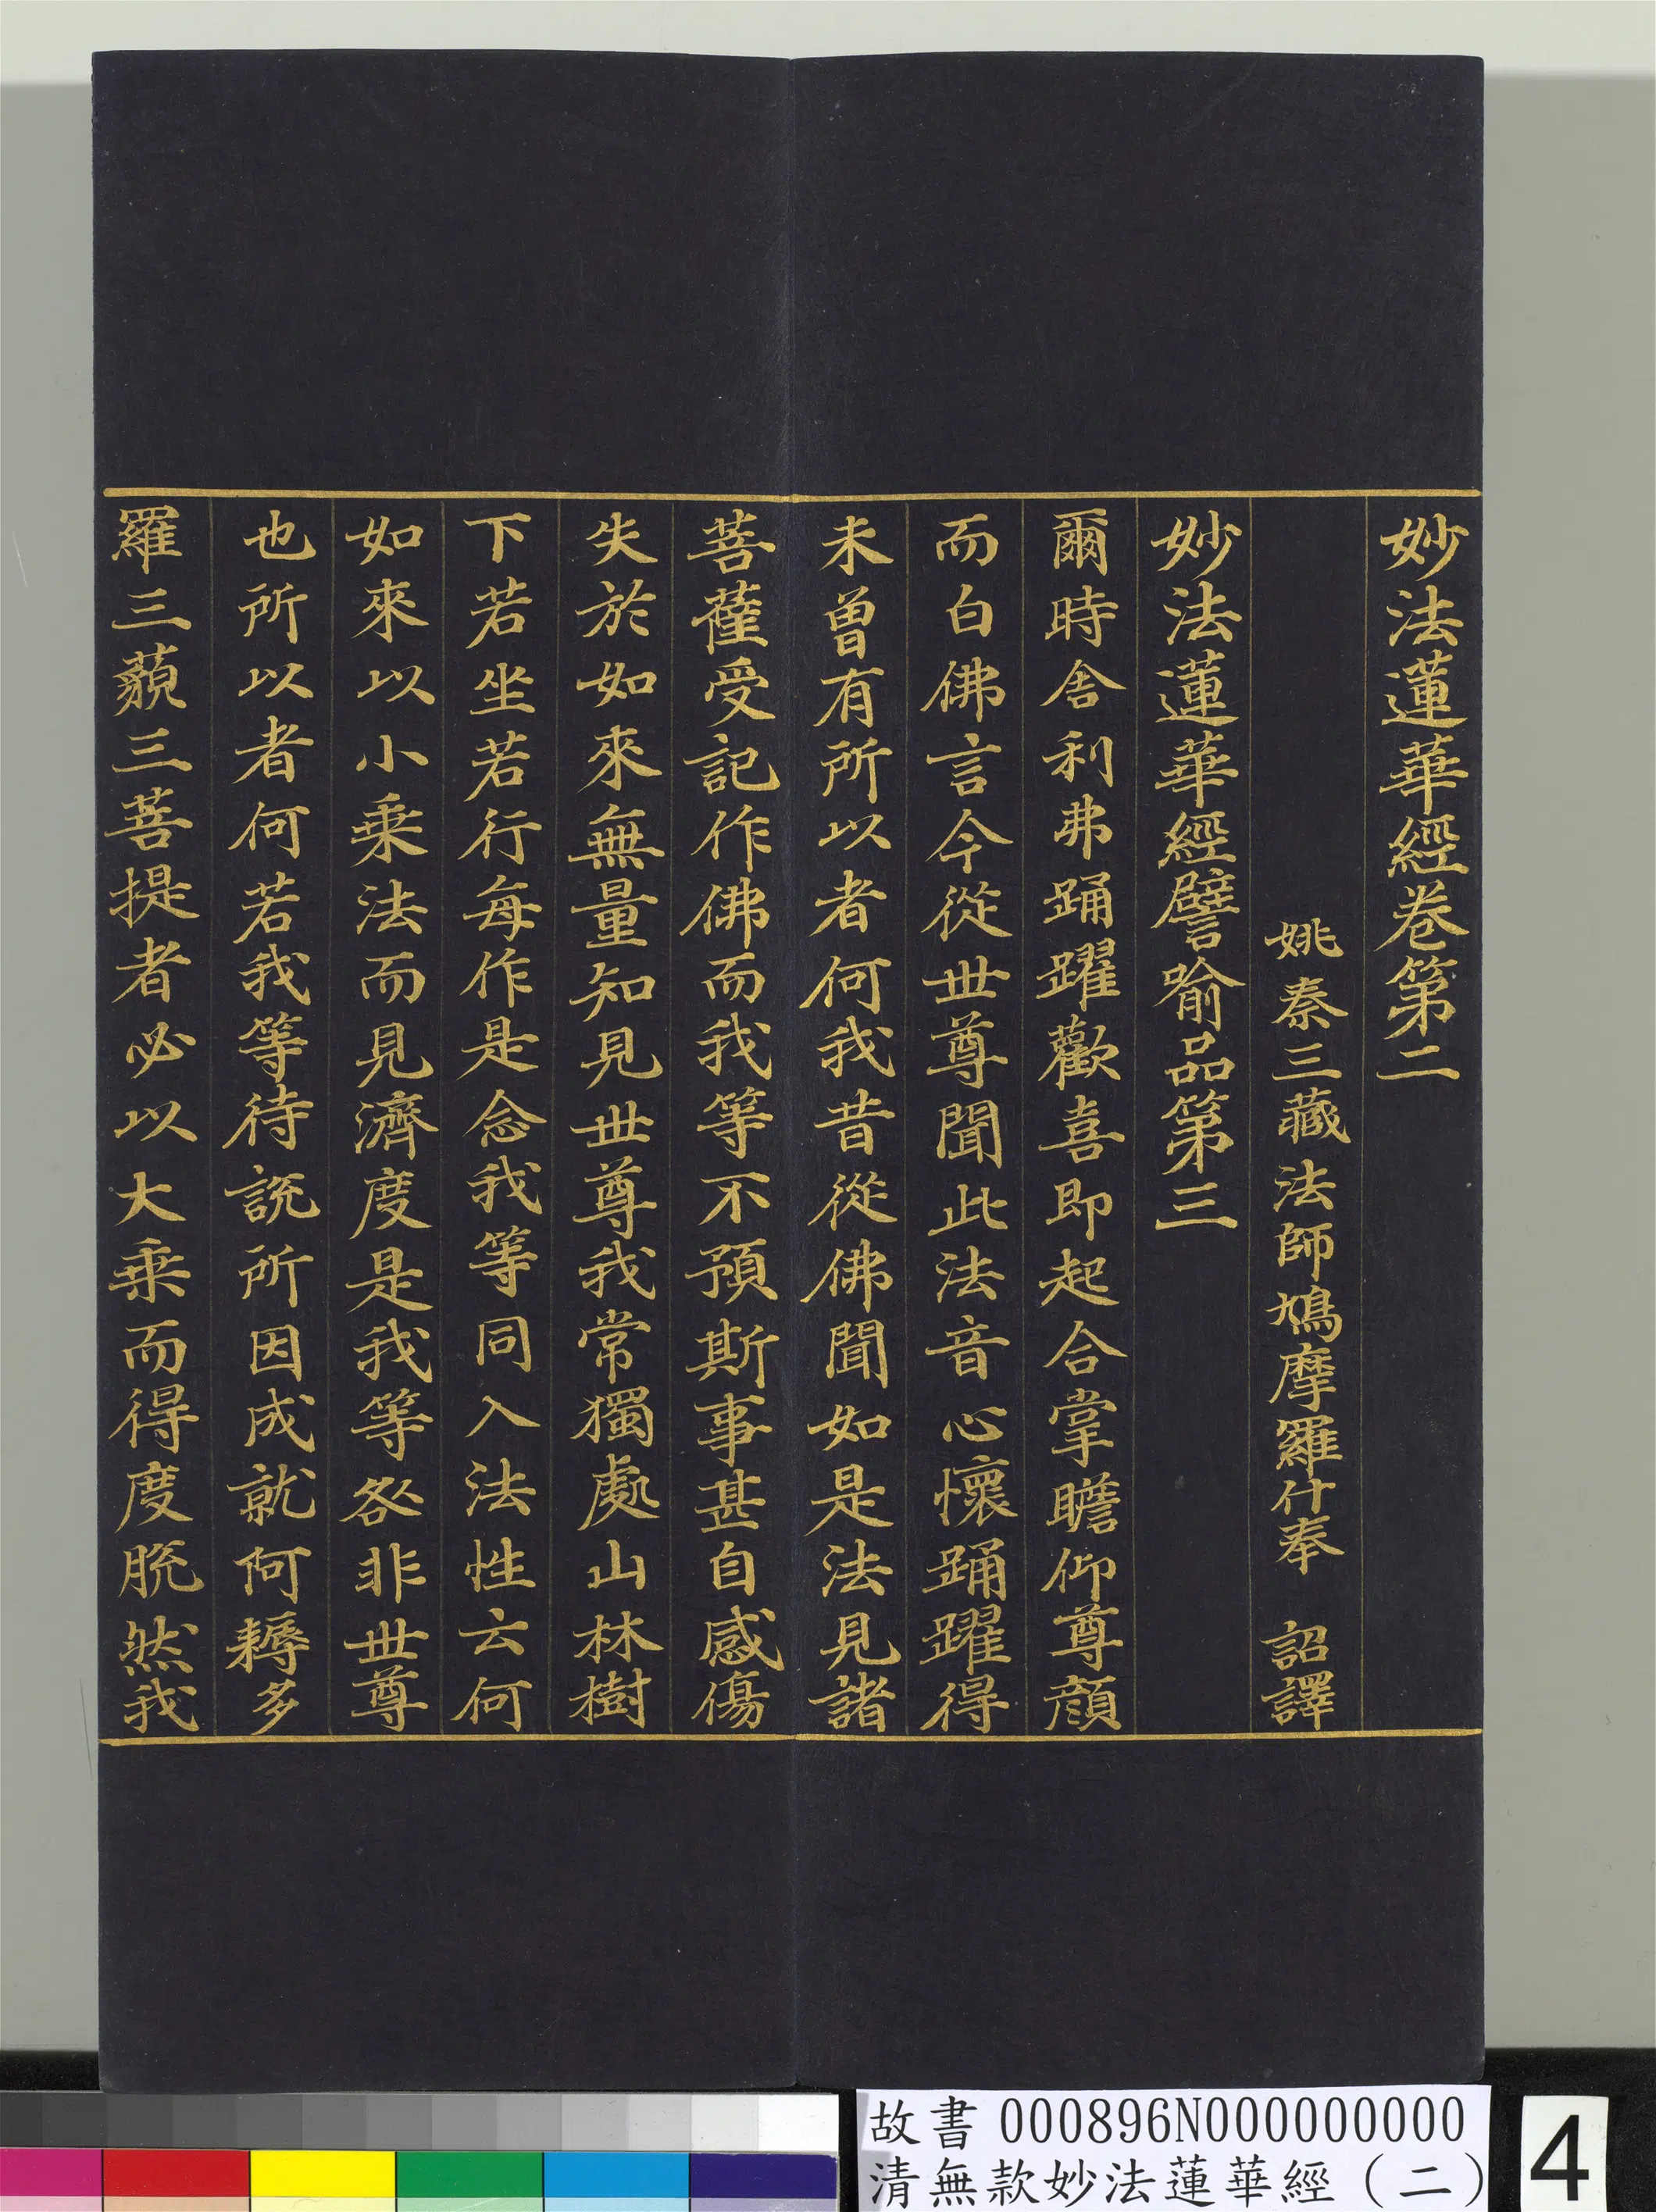 妙法蓮華經卷第二
姚秦三藏法師鳩摩羅什奉 詔譯
妙法蓮華經譬喻品第三
爾時舍利弗踊躍歡喜即起合掌瞻仰尊顏
而白佛言今從世尊聞此法音心懷踊躍得
未曾有所以者何我昔從佛聞如是法見諸
菩薩受記作佛而我等不預斯事甚自感傷
失於如來無量知見世尊我常獨處山林樹
下若坐若行每作是念我等同入法性云何
如來以小乘法而見濟度是我等咎非世尊
也所以者何若我等待說所因成就阿耨多
羅三藐三菩提者必以大乘而得度脫然我
故書 000896N000000000
清無款妙法蓮華經(二)
4